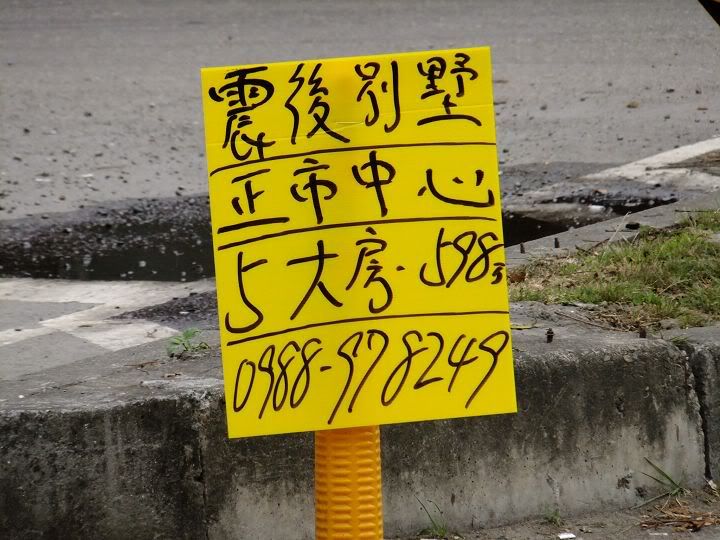 震後別墅
正市中心
5大房.598万
0988-978249